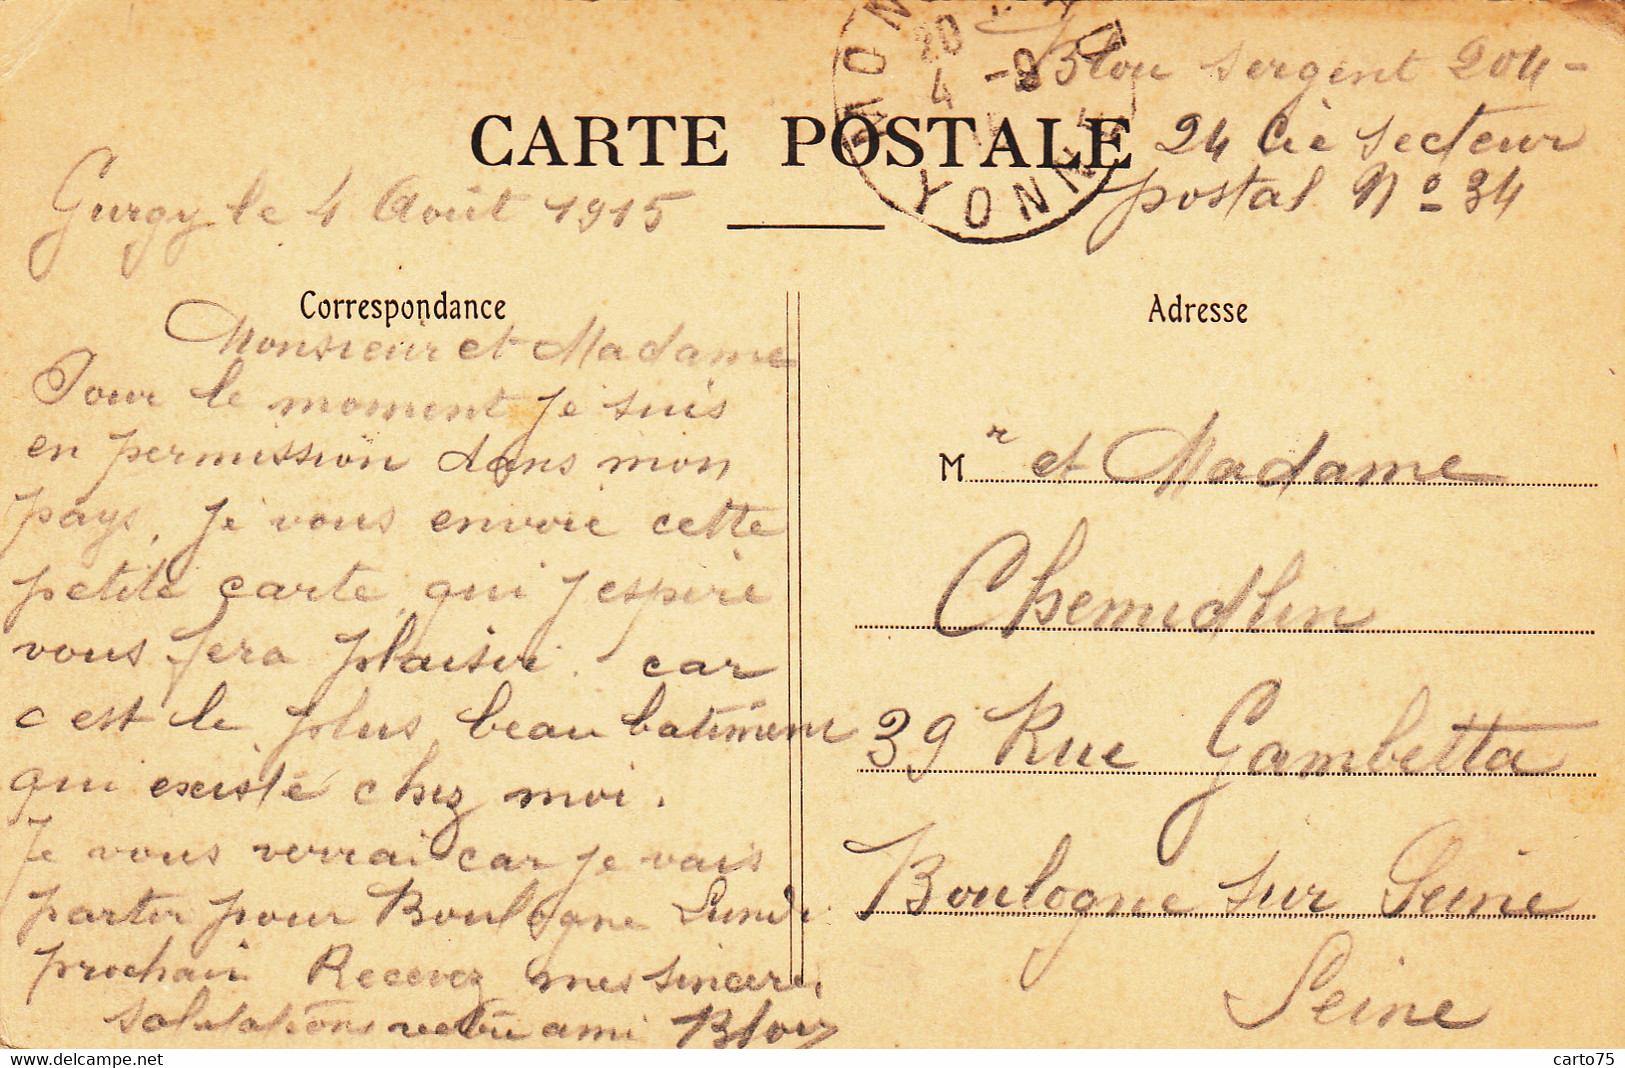 Blou sergent 204-
24 Cie secteur
postal Nº 34
CARTE POSTALE
YONNE
20
4 -8
Gurgy le 4 Août 1915
Correspondance
Monsieur et Madame
Pour le moment je suis
en permission dans mon
pays, je vous envoie cette
petite carte, qui j espère
vous fera plaisir. car
c est le plus beau batiment
qui existe chez moi.
Je vous verrai car je vais
partir pour Boulogne Lundi
prochain Recevez mes sincère.
salutations votre ami Blou
Adresse
M r et Madame
Chemidlin
39 Rue Gambetta
Boulogne sur Seine
Seine
carto75